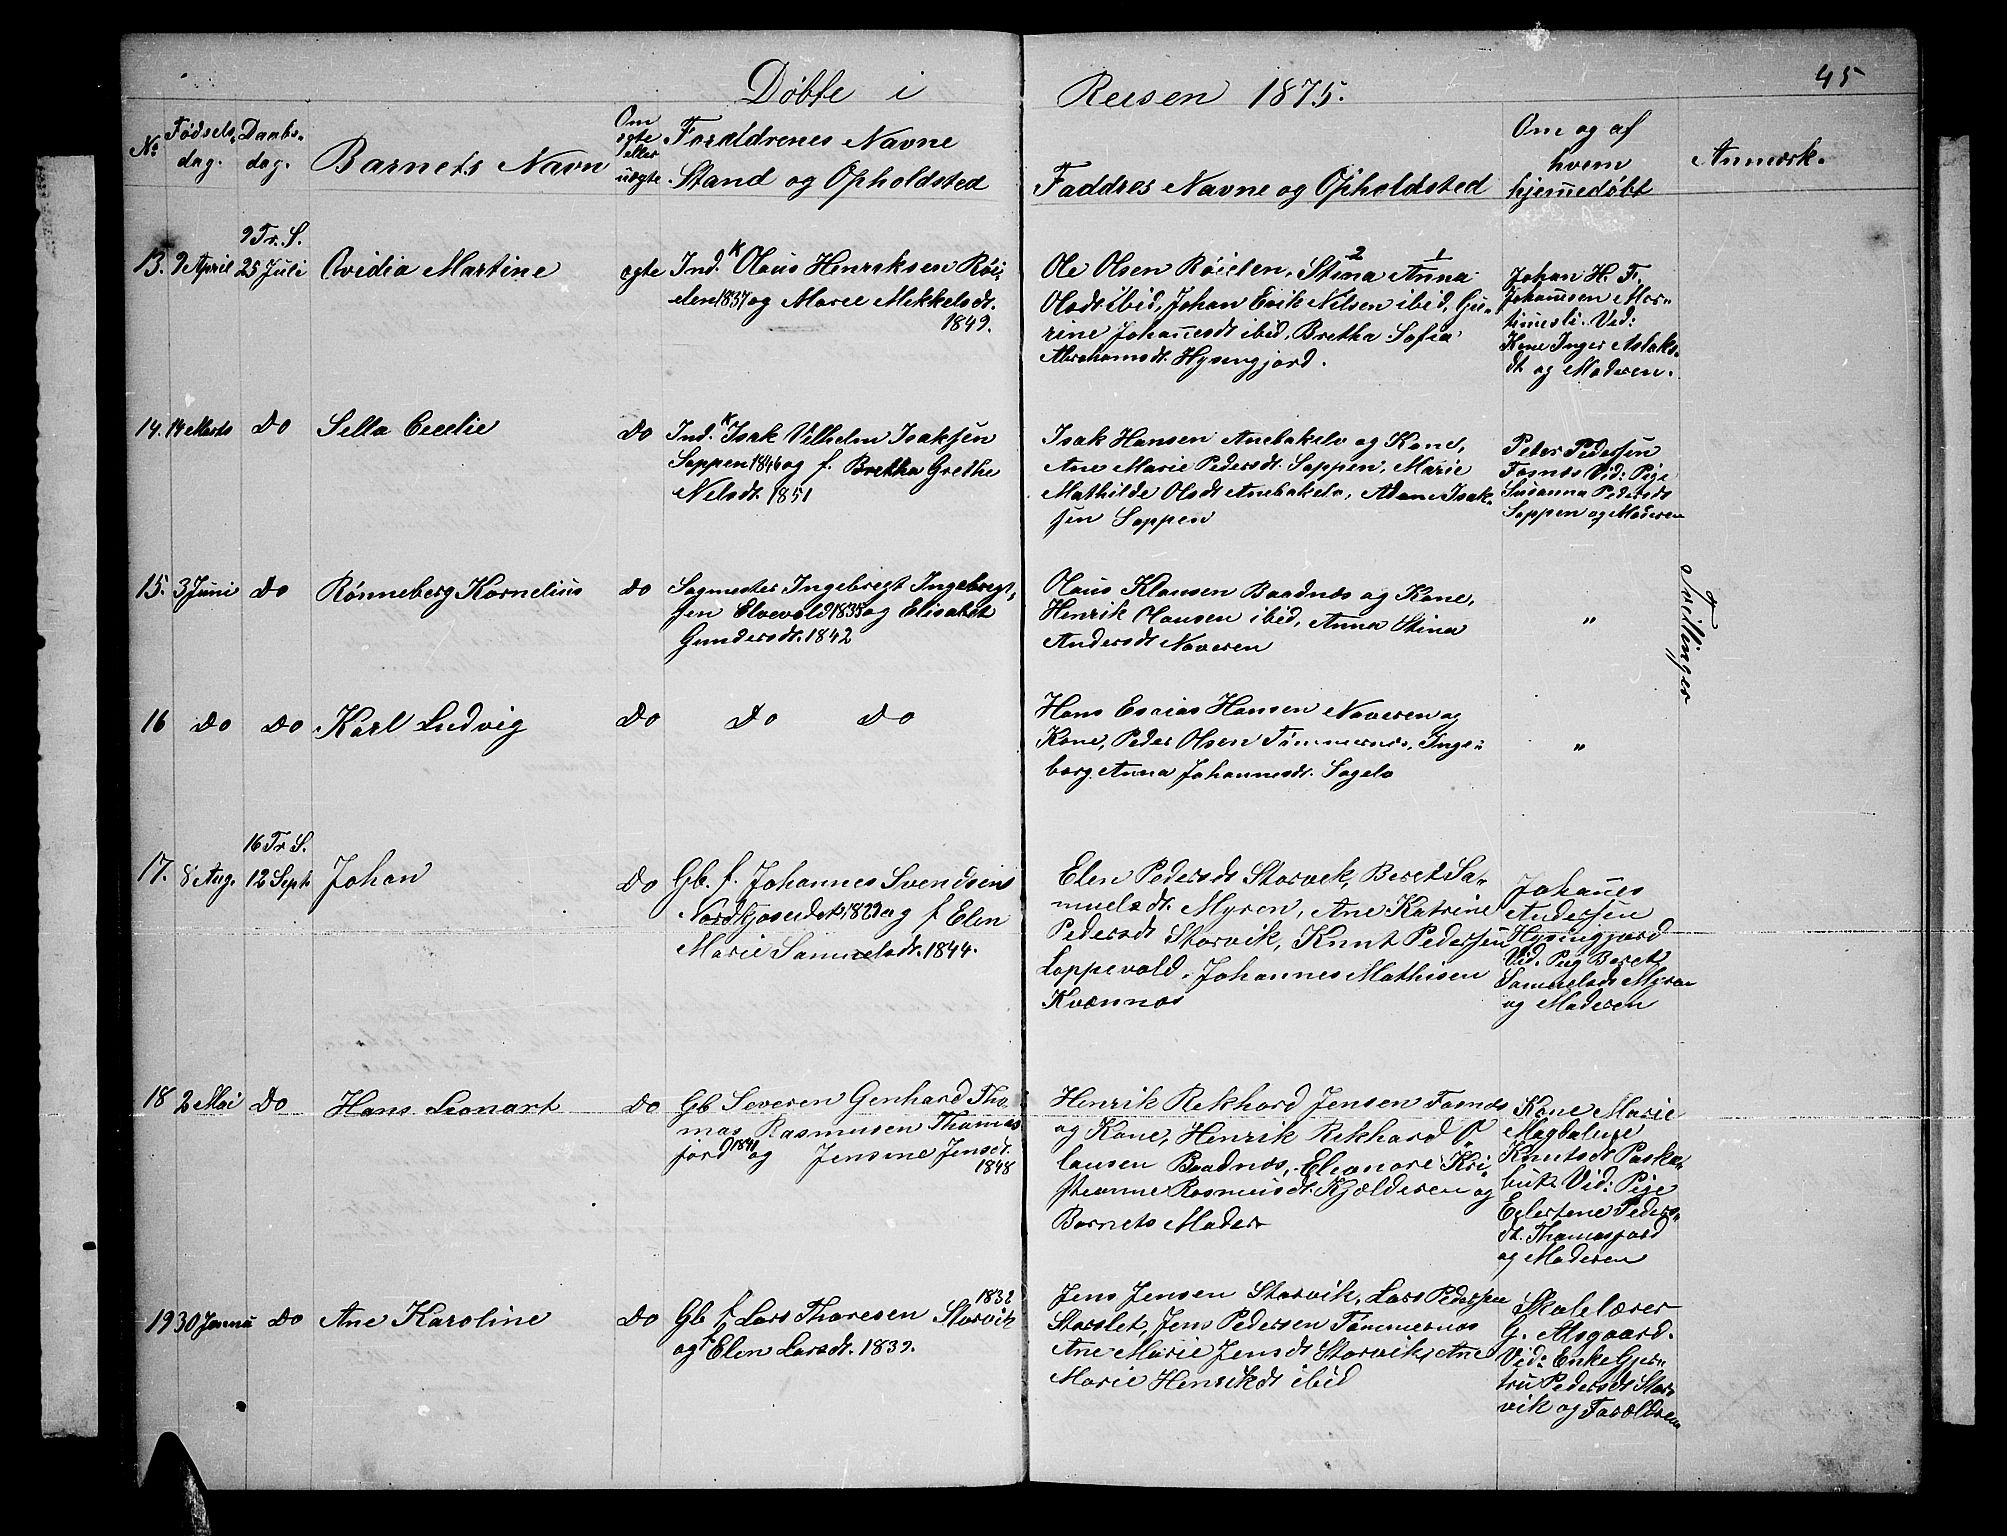 45
Døbte i Reisen 1875.
No
Fødsels-
dag.
Daabs-
dag.
Barnets Navn
Om
ægte
eller
uægte.
Forældrenes Navne
Stand og Opholdsted
Faddres Navne og Opholdsted
Om og af
hvem
hjemmedøbt
Anmærk.
13. 9 April
9 Tr. S.
25 Juli
Ovidia Martine
ægte
Ind. K Olaus Henriksen Røi-
elen 1837 og Marie Mikkelsdt.
1849.
Ole Olsen Røielen, Stina 2 Anna 1
Olsdt ibid, Johan Erik Nilsen ibid, Gu-
rine Johannesdt ibid, Bretha Sofia
Abrahamsdt. Hysingjord.
Johan H. F.
Johannesen Mar-
tinesli. Vid:
Kone Inger Aslaks-
dt. og Moderen.
14. 14 Marts
Do
Sella Cecelie
Do
Ind. K Isak Vilhelm Isaksen
Sappen 1846 og f. Bretha Grethe
Nilsdt. 1851
Isak Hansen Anebakelv og Kone,
Ane Marie Pedersdt. Sappen, Marie
Mathilde Olsdt Anebakelv, Adam Isak-
sen Sappen
Peter Pedersen
Fosnes Vid: Pige
Susanna Pedersdt
Sappen og Moderen
15. 3 Juni
Do
Rønneberg Kornelius
Do
Sagmester Ingebregt Ingebregt-
sen Elvevold 1835 og Elisabet
Gundersdt. 1842
Olaus Klausen Baadnes og Kone,
Henrik Olausen ibid, Anna Stina
Andersdt Naveren
"
Tvillinger
16 Do
Do
Karl Ludvig
Do
Do Do
Hans Esaias Hansen Naveren og
Kone, Peder Olsen Tømmernes, Inge-
borg Anna Johannesdt. Sagelv
"
17. 8 Aug.
16 Tr. S.
12 Sept.
Johan
Do
Gb. f. Johannes Svendsens
Nordkjoseidet 1829 og f Elen
Marie Samuelsdt. 1844.
Elen Pedersdt Storvik, Beret Sa-
muelsdt. Myren, Ane Katrine
Pedersdt Storvik, Knut Pedersen
Loppevold, Johannes Mathisen
Kvænnes
Johannes
Andersen
Hysingjord
Vid. Pig Beret
Samuelsdt Myren
og Moderen
18 2 Mai
Do
Hans Leonart
Do
Gb Severen Genhard Tho-
mas Rasmusen Thomas
fjord 1840 og Jensine Jensdt.
1848
Henrik Rekhard Jensen Fosnes
og Kone, Henrik Rikhard O-
lausen Baadnes, Eleonore Kri-
stianne Rasmusdt. Kjælderen og
Barnets Moder
Kone Marie
Magdalene
Knutsdt Paska-
buk. Vid: Pige
Eglertene Peders-
dt. Thomasfjord
og Moderen
19 30 Janua
Do
Ane Karoline
Do
Gb f. Lars Thoresen 1832 Storvik
og f Elen Larsdt. 1839.
Jens Jensen Storvik, Lars Pedersen
Storslet, Jens Pedersen Tømmernes
Ane Marie Jensdt Storvik, Ane
Marie Henrikdt ibid
Skolelærer
G. Alsgaard.
Vid: Enke Gjer-
tru Pedersdt Stor-
vik og Forældrene